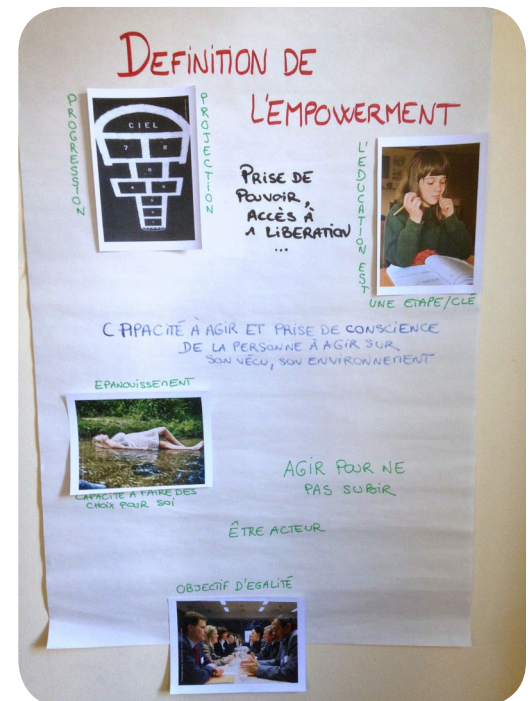 DEFINITION DE
L'EMPOWERMENT
PROGRESSION
CIEL
7 8
PROJECTION
PRISE DE
POUVOIR,
ACCÈS À
1 LIBERATION
...
L'EDUCATION EST
UNE ETAPE/CLÉ
CAPACITÉ À AGIR ET PRISE DE CONSCIENCE
DE LA PERSONNE À AGIR SUR
SON VÉCU, SON ENVIRONNEMENT
EPANOUISSEMENT
CAPACITÉ A FAIRE DES
CHOIX POUR SOI
AGIR POUR NE
PAS SUBIR
ÊTRE ACTEUR
OBJECTIF D'EGALITÉ